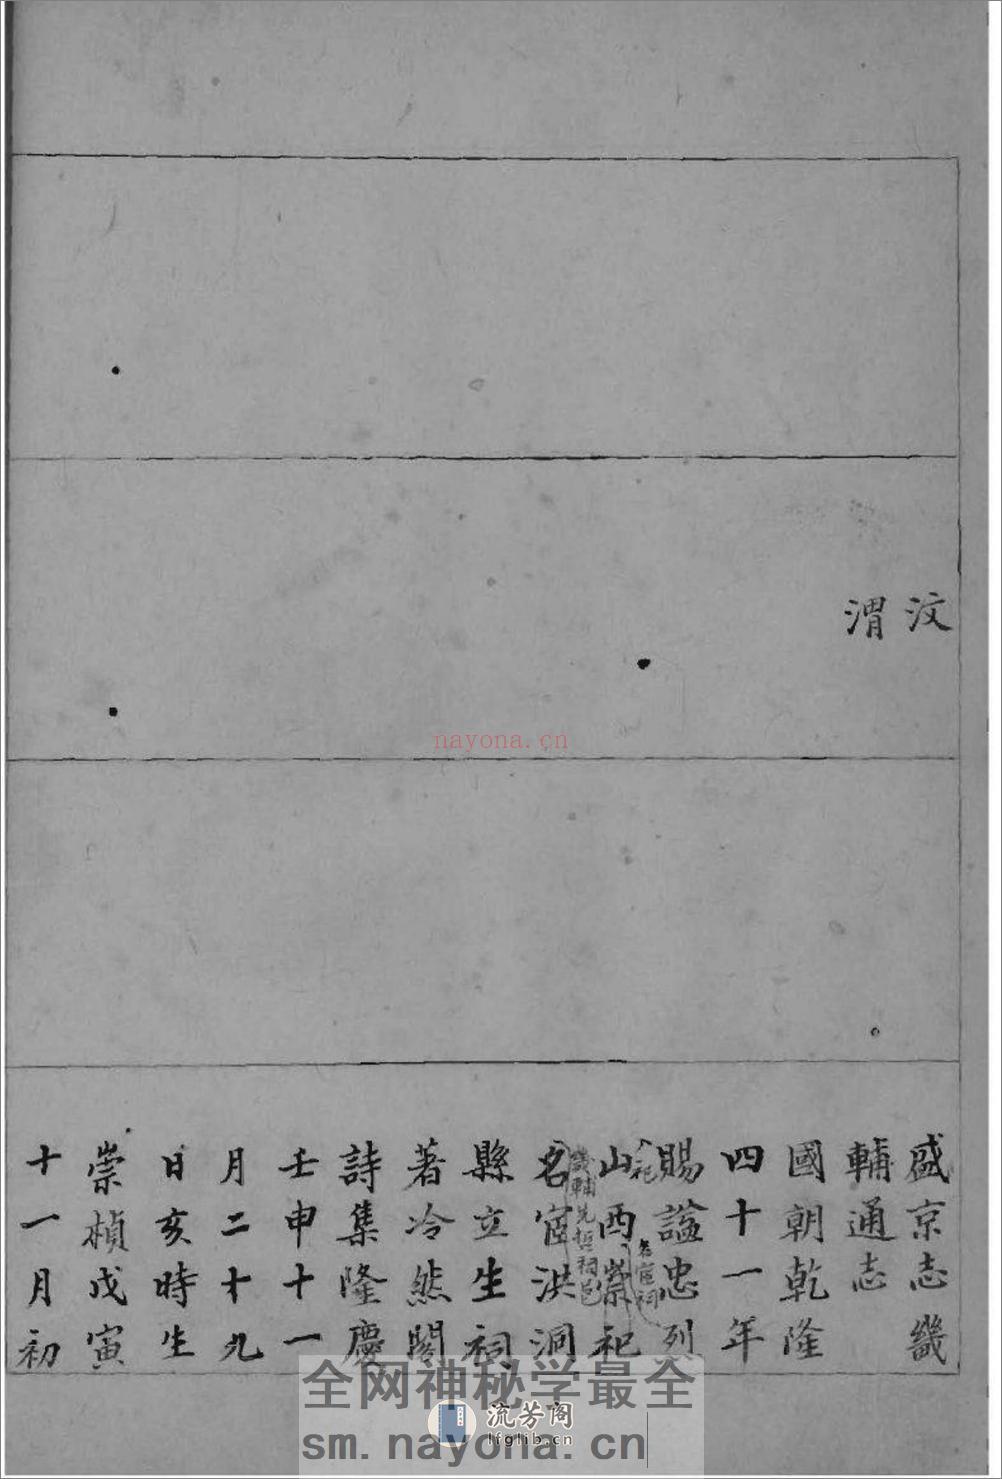 汶
渭
盛京志畿
輔通志
國朝乾隆
四十一年
賜謚忠烈
入祀
名宦祠
山西崇祀
畿輔先哲祠邑
名宦洪洞
縣立生祠
著冷然閣
詩集隆慶
壬申十一
月二十九
日亥時生
崇楨戊寅
十一月初
nayona.cn
全网神秘学最全
流芳阁
lfglib.cn
sm.nayona.cn